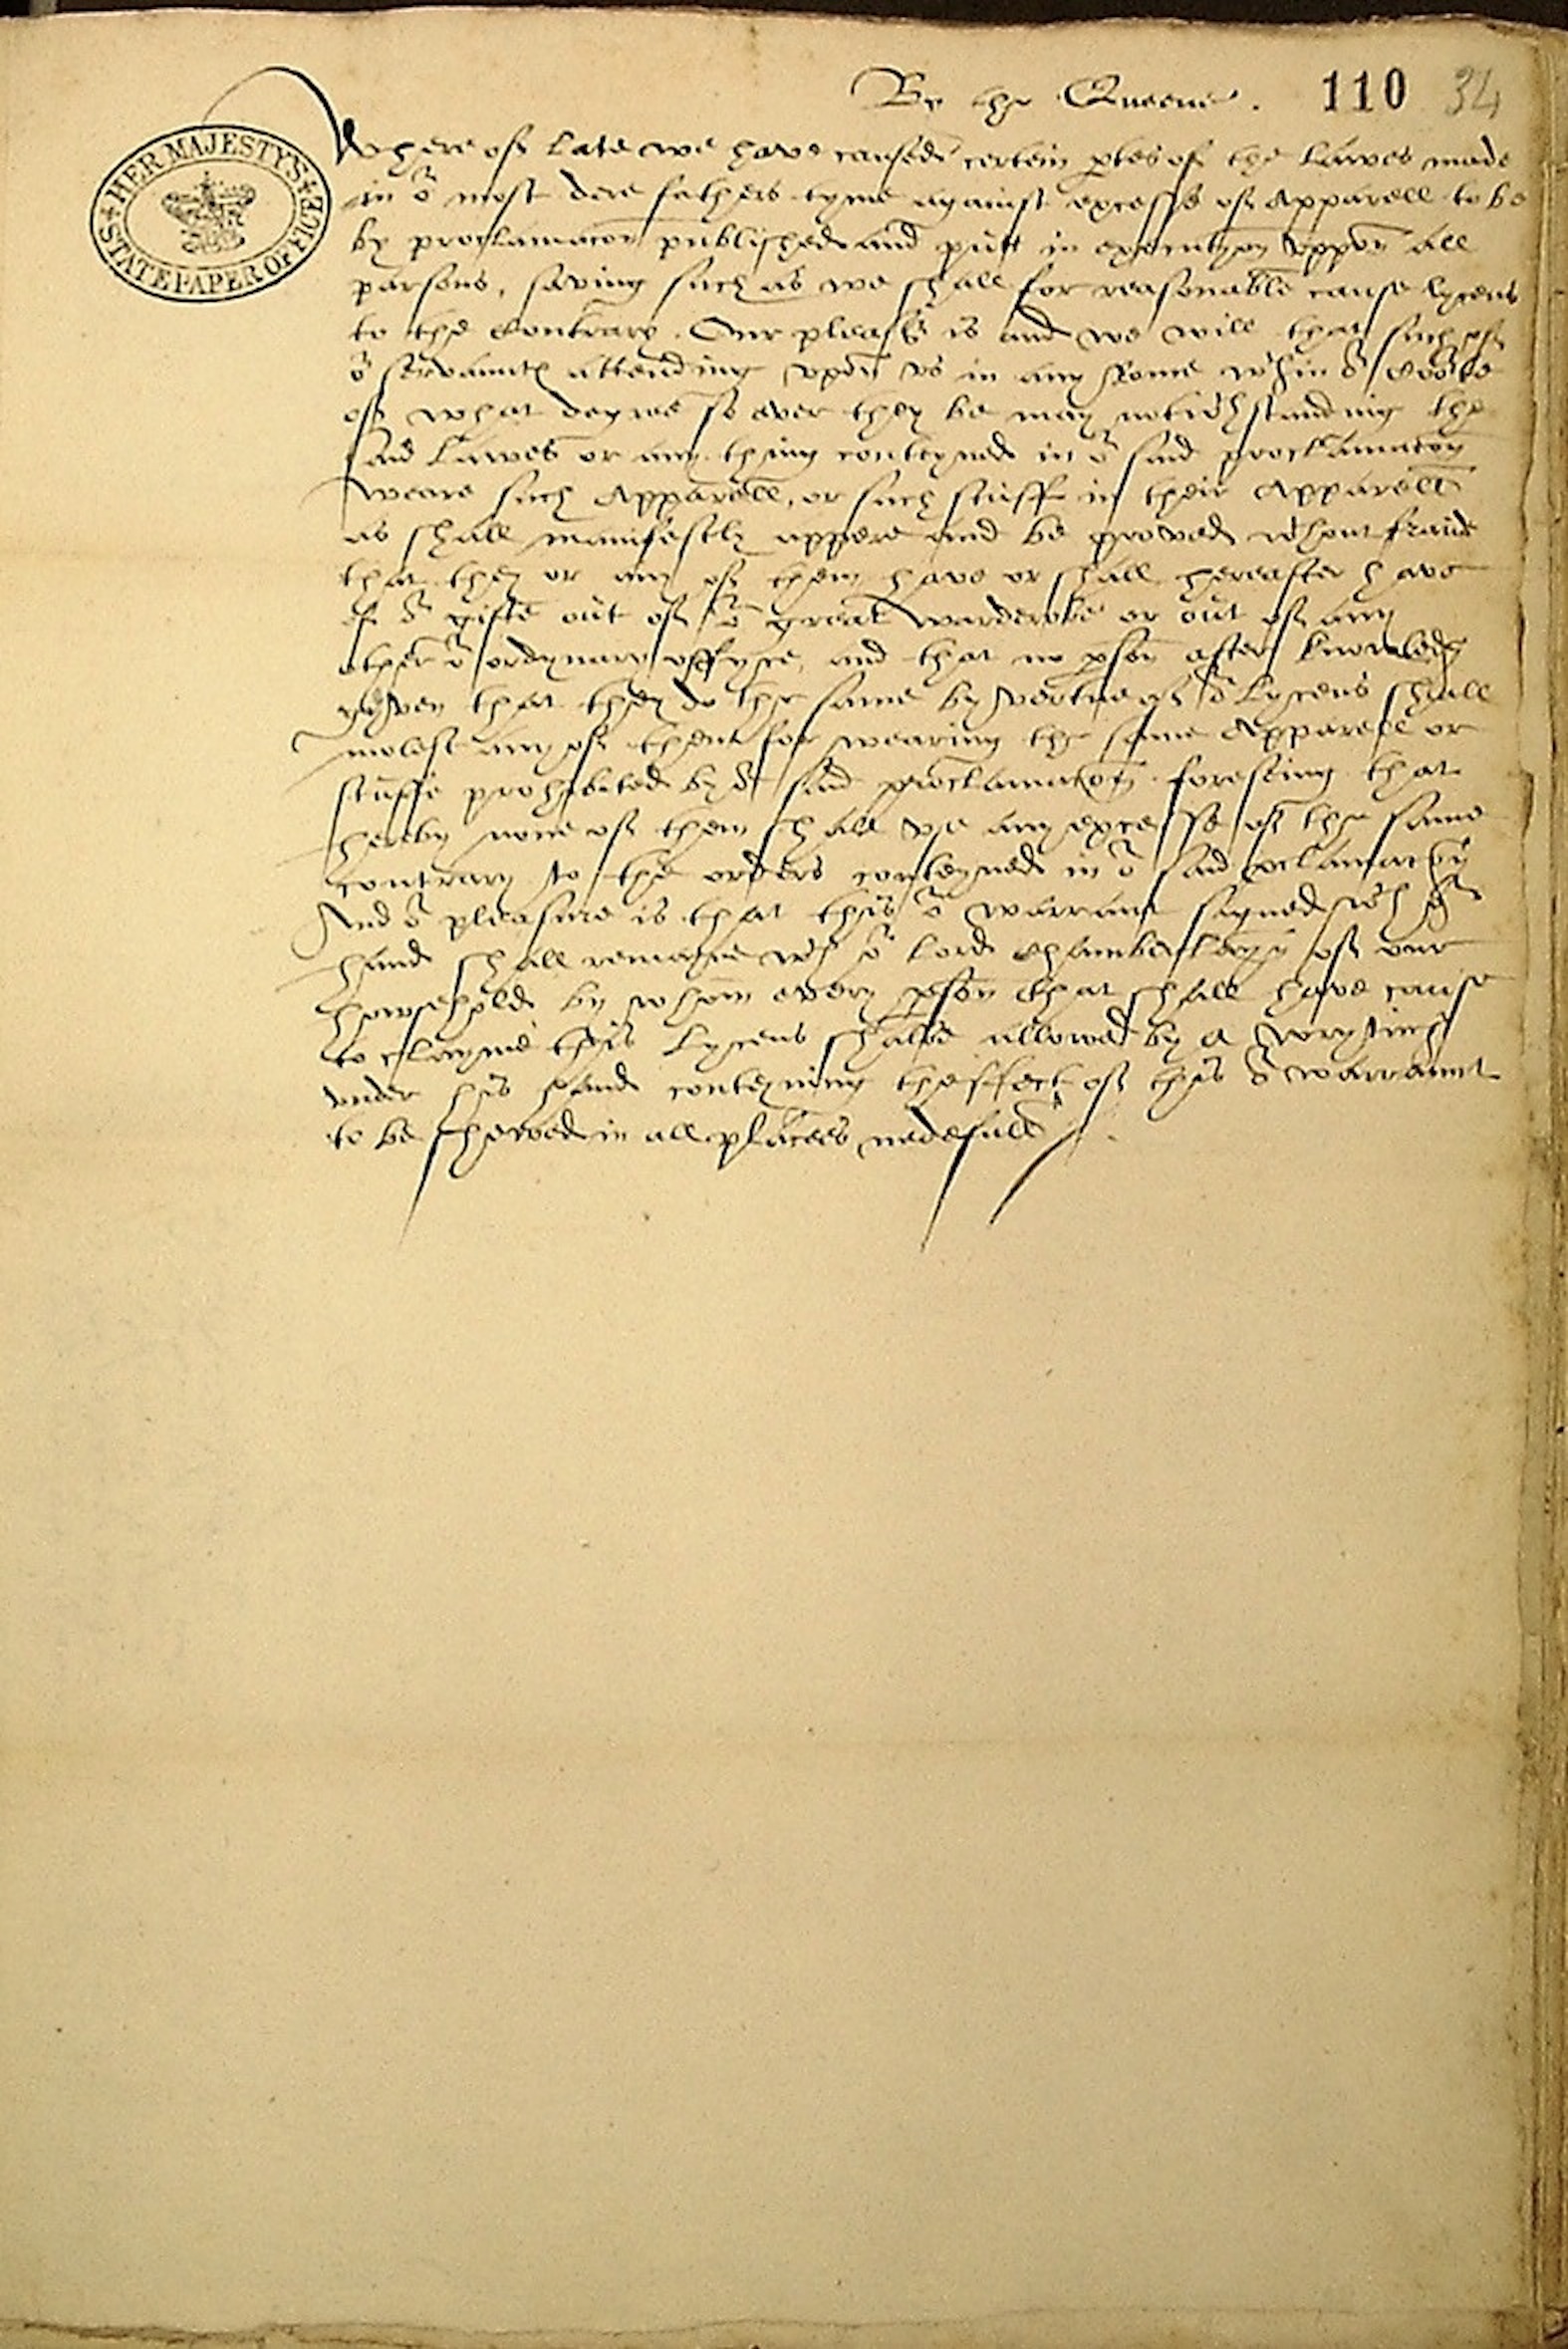 By the Queene. 110 34
HER MAJESTY'S STATE PAPER OFFICE
Where off late we have caused certein ptes of the Lawes made
in or most dere fathers tyme against excesse off Apparell to be
by proclamacon published and putt in execucyon uppon all
parsons, saving such as we shall for reasonable cause lycens
to the contrary. Our pleasr is and we will that such off
or servauntes attending vpon vs in any Rome wthin or
off what degree so ever they be may notwthstanding the
said Lawes or any thing conteyned in or said proclamacon
weare such Apparell, or such stuffe in their Apparell
as shall manifestly appere and be proved wthout fraude
that they or any off them have or shall hereafter have
of or gifte out off or great warderobe or out off any
other or ordynary offyce, and that no pson after knowledg
geven that they do the same by vertue off or Lycens shall
molest any off them for wearing the same Apparell or
stuffe prohibited by or said proclamacon foreseing that
hereby none off them shall vse any excesse off the same
contrary to the orders conteyned in or said pclamacon
And or pleasure is that this or warrant signed wth or
hand shall remayne wth or Lord chamberleyn off our
howsehold by whom every pson that shall have cause
to clayme this Lycens shalbe allowed by a wryting
vnder his hand conteyning theffect off this or warraunt
to be shewed in all places nedefull